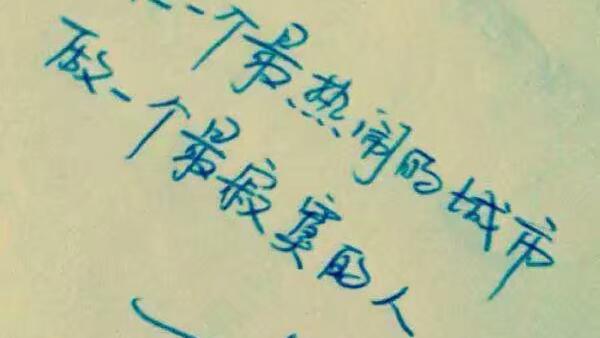 一个最热闹的城市
做一个最寂寞的人